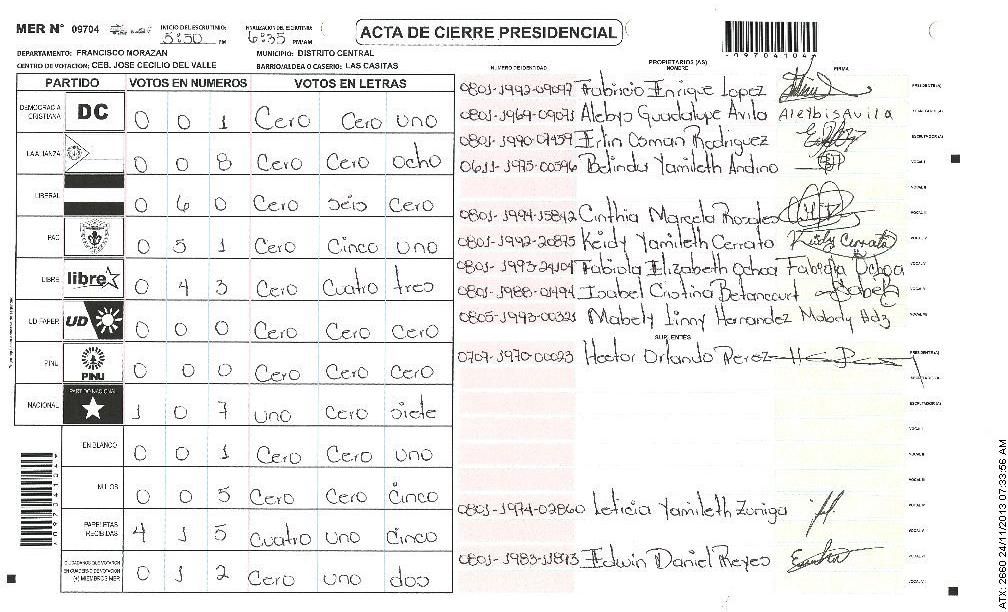 MER Nº 09704
INICIO DEL ESCRUTINIO: 5:50 PM
FINALIZACION DEL ESCRUTINIO: 6:35 PM/AM
ACTA DE CIERRE PRESIDENCIAL
09704104
DEPARTAMENTO: FRANCISCO MORAZAN
MUNICIPIO: DISTRITO CENTRAL
CENTRO DE VOTACION: CEB. JOSE CECILIO DEL VALLE
BARRIO/ALDEA O CASERIO: LAS CASITAS
PARTIDO VOTOS EN NUMEROS VOTOS EN LETRAS
DEMOCRACIA CRISTIANA DC 0 0 1 Cero Cero uno
LA ALIANZA 0 0 8 Cero Cero ocho
LIBERAL 0 6 0 Cero séis Cero
PAC 0 5 1 Cero Cinco uno
LIBRE libre 0 4 3 Cero Cuatro tres
UD FAPER UD 0 0 0 Cero Cero Cero
PINU PINU 0 0 0 Cero Cero Cero
NACIONAL PARTIDO NACIONAL 1 0 7 uno Cero siete
EN BLANCO 0 0 1 Cero Cero uno
NULOS 0 0 5 Cero Cero Cinco
PAPELETAS RECIBIDAS 4 1 5 Cuatro uno Cinco
CIUDADANOS QUE VOTARON EN CUADERNO DE VOTACION (+) MIEMBROS MER 0 1 2 Cero uno dos
NUMERO DE IDENTIDAD PROPIETARIOS (AS) NOMBRE FIRMA
0801-1992-09097 Fabricio Enrique Lopez PRESIDENTE(A)
0801-1969-09071 Alebys Guadalupe Avila Aleybis Avila
0801-1990-07459 Erlin Coman Rodriguez ESCRUTADOR(A)
0611-1975-00596 Belinda Yamileth Andino VOCAL I
VOCAL II
0801-1994-15842 Cinthia Marcela Rozales VOCAL III
0801-1992-20875 Keidy Yamileth Cerrato Keidy Cerrato VOCAL IV
0801-1993-24104 Fabiola Elizabeth Ochoa Fabiola Ochoa VOCAL V
0801-1988-01494 Isabel Cristina Betancourt
0805-1993-00321 Mabely Linny Hernandez Mabely Hdz
SUPLENTES
0709-1970-00023 Hector Orlando Perez PRESIDENTE(A)
SECRETARIO(A)
ESCRUTADOR(A)
VOCAL I
VOCAL II
VOCAL III
0801-1974-02860 Leticia Yamileth Zuniga VOCAL IV
VOCAL V
0801-1983-13893 Edwin Daniel Reyes VOCAL VI
VOCAL VII
ATX-2660 24/11/2013 07:33:56 AM